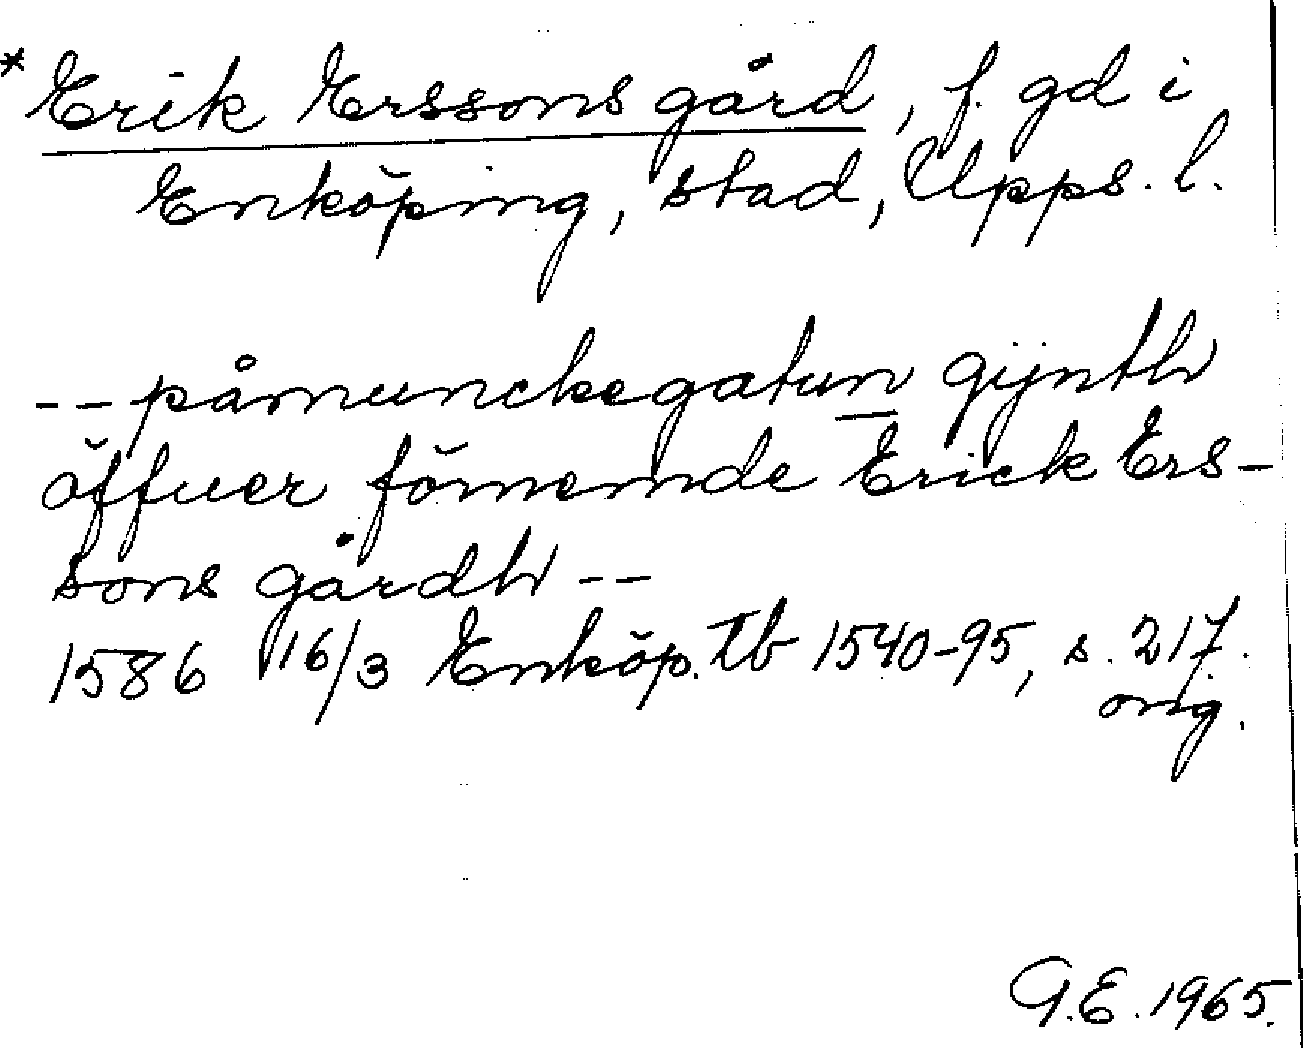 * Erik Erssons gård, f. gd i
Enköping, stad, Upps. l.
-- påmunckegatun gÿnth
öffuer förnemde Erick Ers-
sons gårdh --
1586 16/3 Enköp. Tb 1540-95, s. 217.
orig.
G.E. 1965.